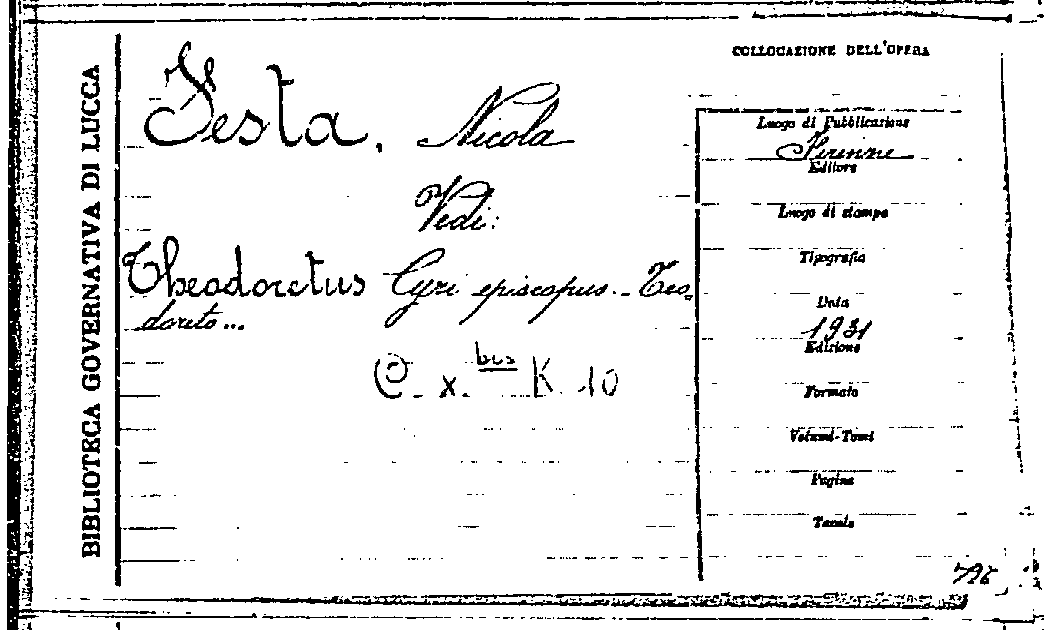 BIBLIOTECA GOVERNATIVA DI LUCCA
COLLOCAZIONE DELL'OPERA
Testa, Nicola
Vedi:
Theodoretus Cyri episcopus - Teo-
doreto...
C. x. bis K 10
Luogo di Pubblicazione
Firenze
Editore
Luogo di stampa
Tipografia
Data
1931
Edizione
Formato
Volumi-Tomi
Pagine
Tavole